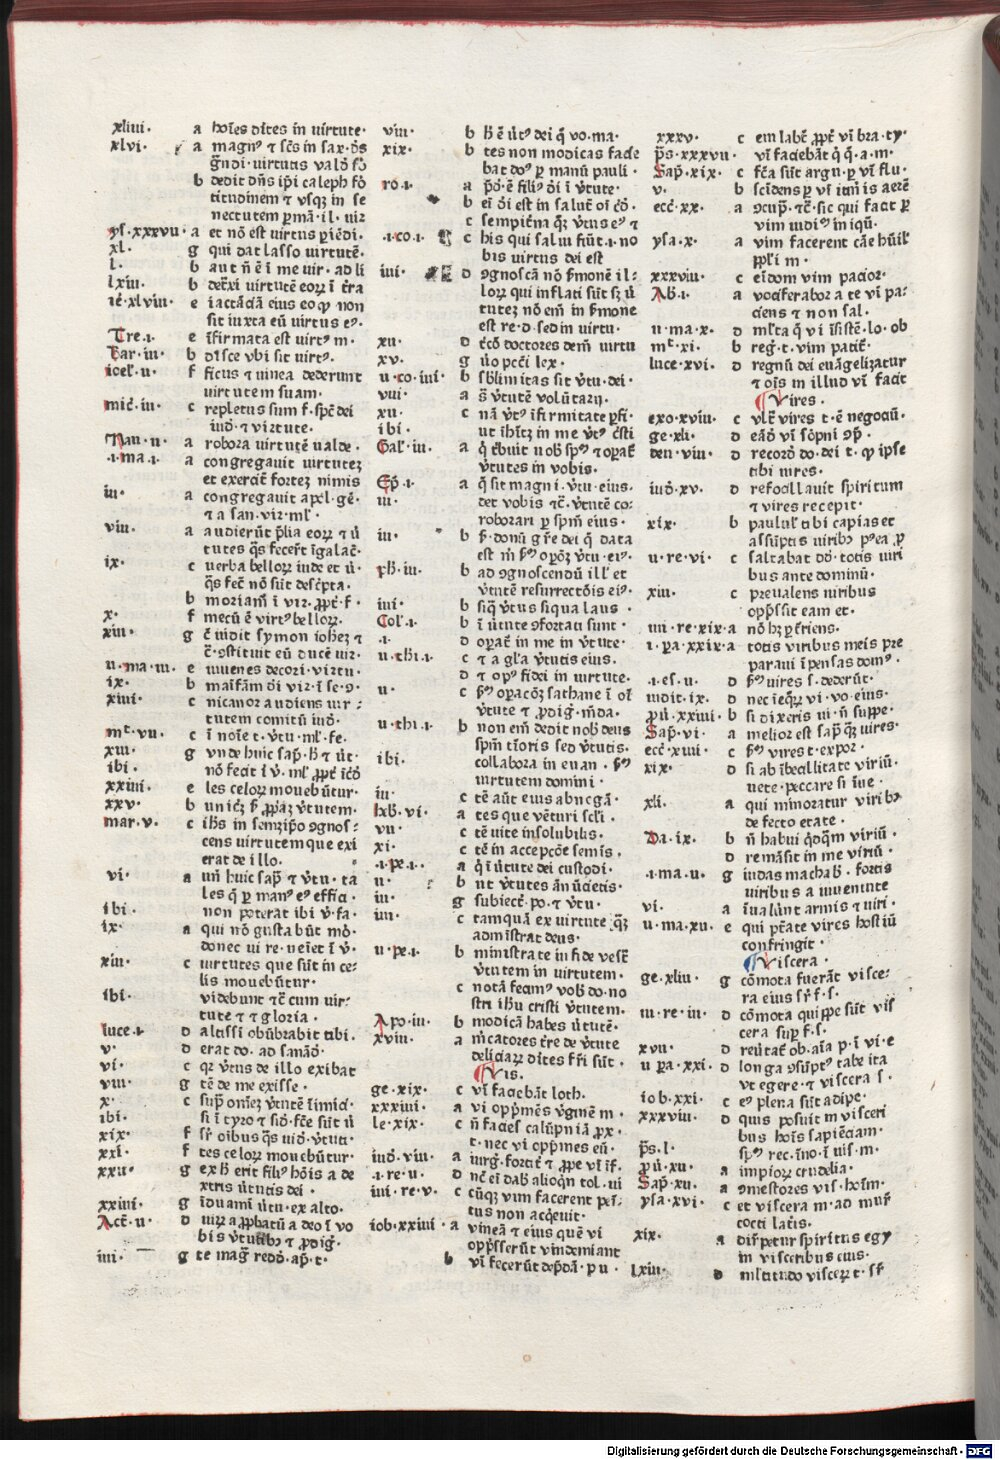 xliiii· a hoīes dītes in uirtute·
xlvi· a magnꝰ ⁊ sc̄s in sax· ds̄
gn̄di· uirtutis valō fō
b dedit dn̄s ip̄i caleph fō
titudinem ⁊ vsqꝫ in se
nectutem ꝑmā· il· uir
ys·xxxvii· a et nō est uirtus ꝑiēdi·
xl· g qui dat lasso uirtutē·
l· b aut n̄ ē ī me uir· ad li
lxiii· b detr̄xi uirtutē eoꝝ ī t̄ra
ie·xlviii· e iactācia eius eo ꝙ non
sit iuxta eū uirtus eꝰ·
Tre·i· e īfirmata est uirtꝰ m·
Bar·iii· b disce vbi sit uirtꝰ·
ioel·ii· f ficus ⁊ uinea dederunt
uirtutem suam·
mic·iii· c repletus sum f· sp̄c dei
iud̄· ⁊ virtute·
Nau·ii· a robora uirtutē ualde·
·i·ma·i· a congregauit uirtutez
et exercit̄ fortez nimis
iii· a congregauit apel· gē·
⁊ a san· vir· ml̄·
viii· a audierūt p̄lia eoꝝ ⁊ ū
tutes q̄s fecer̄t īgalac̄·
ix· c uerba belloꝝ iude et ū·
q̄s fec̄ nō sūt desc̄pta·
b moriam̄ ī vir· ꝓpt̄ f·
x· f mecū ē virtꝰ belloꝝ·
xiii· g c̄ uidit symon iohēz ⁊
c̄· ꝯstituit eū ducē uir·
ii·ma·iii· e iuuenes decori· virtu·
ix· b maīfām dī vir· ī se·ꝯ·
xiiii· c nicanor audiens uir:
tutem comitū iud̄·
mt̄·vii· c ī noīe t· v̄tu· ml̄· fe·
xiii· g vnde huic sap̄· h̄ ⁊ ūt·
ibi· nō fecit ī v̄· ml̄· ꝓpt̄ īcō
xxiiii· e les celoꝝ mouebūtur·
xxv· b unicz ß ꝓpāz v̄tutem·
mar·v· c ih̄s in semzip̄o ꝯgnos:
cens uirtutem que exi
erat de illo·
vi· a un̄ huic sap̄ ⁊ v̄tu· ta
les q̄ ꝑ manꝰ eꝰ effici·
ibi· non poterat ibi v̄· fa·
ix· a qui nō gustabūt mō·
donec ui re·neiet ī v̄·
xiii· c uirtutes que sūt in ce:
lis mouebūtur·
ibi· videbunt ⁊c̄ cum uir:
tute ⁊ ⁊ gloria·
luce·i· d altissi obūbrabit tibi·
v· d erat do· ad sanād̄·
vi· c qꝫ v̄tus de illo exibat
viii· g tē de me exisse·
x· c sup̄ omēz v̄tutē īimici·
ibi· si ī tyro ⁊ sid̄· fc̄e sūt ū
xix· f sr̄ oibus q̄s uid̄· v̄tuti·
xxi· f tes celoꝝ mouebūtur·
xxii· g ex h̄ erit filꝰ hōis a de
xtris ūtutis dei·
xxiiii· g īduamī ūtu· ex alto·
Act̄·ii· d uiꝝ a ꝓbatū a deo ī vo
bis v̄tutibꝫ ⁊ ꝓdig̃·
iiii· g te mag̃ redd̄· ap̄· t·
viii· b h̄ ē ūtꝰ dei q̄ vo· ma·
xix· b tes non modicas facie
bat doꝰ ꝑ manū pauli·
ro·i· a p̄d̄· ē filiꝰ d̄i ī v̄tute·
b eī d̄i est in salut̄ oī cd̄·
c sempitna qꝫ v̄tus eꝰ ⁊
·i·co·i· c his qui salui fiūt· i· no
bis uirtus dei est
iiii· d ꝯgnoscā nō ßmonē il:
loꝝ qui inflati sūt sꝫ ū
tutez nō em̄ in ßmone
est re· d· sed in uirtu·
xii· d t̄cō doctores dem̄ uirtu
xv· g ūo pcc̄i lex·
ii·co·iiii· b sb̄limitas sit v̄tu· dei·
viii· a s̄ v̄tutē volūtarij·
xii· c nā v̄tꝰ īfirmitate ꝑfi·
ibi· ut īhītz in me v̄tꝰ c̄sti
Gal·iii· a q̄ t̄buit nob̄ sp̄ꝰ ⁊ opat̄
v̄tutes in vobis·
Ep̄·i· a q̄ sit magni· v̄tu· eius·
iii· det vobis ⁊c̄· v̄tutē co:
roborari ꝑ sp̄m eius·
iii· b ß· donū gr̄e dei q̄ data
est m̄ ßꝰ opōz v̄tu· eiꝰ·
ph̄·iii· b ad ꝯgnoscendū illꝰ et
v̄tutē resurrectōis eiꝰ·
iiii· b siq̄ v̄tus siqua laus·
Col·i· b ī ūtute ꝯfortati sunt·
·i· d opat̄ in me in v̄tute·
ii·thi·i· c ⁊ a gla v̄tutis eius·
d ⁊ opꝰ fidei in uirtute·
ii· c ßꝰ opacōz sathane ī oī
v̄tute ⁊ ꝓdig̃· m̄da·
ii·thi·i· b non em̄ dedit nob̄ deus
sp̄m t̄ioris sed v̄tutis·
ibi· collabora in euan· ßꝰ
uirtutem domini·
iii· c tē aūt eius abnegā·
heb̄·vi· a tes que vēturi scl̄i·
vii· c tē uite insolubilis·
xi· c tē in accepcōe semis·
·i·pe·i· a q̄ ī ūtute dei custodi·
ii· b ut v̄tutes ān ūcietis·
iii· g subiect̄· po· ⁊ v̄tu·
iiii· c tamquā ex uirtute qꝫ
admīstrat deus·
ii·pe·i· b ministrate in fide vesc̄
v̄tutem in uirtutem·
c notā fecimꝰ vob̄ do· no
stri ih̄u cristi v̄tutem·
Apo·iii· b modicā habes ūtutē·
xviii· a m̄catores t̄re de v̄tute
deliciaꝝ dītes fc̄i sūt·
Vis·
ge·xix· c vī faciebāt loth·
xxxiiii· a vi oppm̄es v̄ginē m·
le·xix· c n̄ facies calūpniā ꝓx·
t· nec vi oppm̄es eū·
iud̄·viii· a iurg̃· fortit̄ ⁊ ꝓpe vī īf·
·i·re·ii· d nc̄ eī dab̄ alioqn̄ tol· ui
iiii·re·v· c cūqꝫ vim facerent pei:
tus non acq̄euit·
iob·xxiiii· a vineā ⁊ eius que vi
opp̄sserūt vindemiant
b vī fecerūt dep̄dā· p u·
xxxv· c em labēt ꝓpt̄ vī bra· ty·
ps̄·xxxvii· vī faciebāt q̄ q̄· a· m·
Sap̄·xix· c fc̄a sūt argu· ꝑ vī flu·
v· b scidens ꝑ vī itin̄is aerē
ecc̄·xx· a ꝯcup̄· ⁊c̄· sic qui facit ꝑ
vim iudiꝰ in iqū·
ysa·x· a vim facerent cāe hūil
ppl̄i m·
xxxviii· c eīdom vim pacior·
Ab̄·i· a vociferaboꝛ a te vī pa:
ciens ⁊ non sal·
ii·ma·x· d ml̄ta q̄ vi īsistē· lo· ob
mt̄·xi· b reg̃· t· vim patit̄·
luce·xvi· d regnū dei euāgelizatur
⁊ oīs m illud vī facit
Vires·
exo·xviii· c vlt̄ vires t· ē negociū·
ge·xli· d eād̄ vī sōpni ꝯp̄·
den·viii· d recorō do· dei t· ꝙ ipse
tibi uires·
iud̄·xv· d refocillauit spiritum
⁊ vires recepit·
xix· b paulul̄ tibi capias et
assūptis uiribꝰ pꝰea ꝓ
ii·re·vi· c saltabat dd̄· totis uiri
bus ante dominū·
xiii· c preualens uiribus
opp̄ssit eam et·
iiii·re·xix· a nō hꝫ pt̄riens·
i·pa·xxix· a totis viribus meis pre
paraui īpensas domꝰ·
·i·es·ii· d ßꝰ uires s· dederūt·
iudit·ix· d nec īeqꝫ vi· vo eius·
pū·xxiiii· b si dixeris ui· n̄ suppe·
Sap̄·vi· a melior est sap̄ qꝫ uires·
ecc̄·xiiii· c ßꝰ vires t· expor·
xix· d si ab ībecillitate viriū·
uete· peccare si īue·
xli· a qui minoratur viribꝰ
de fecto etate·
Da·ix· b n̄ habui q̄dqm̄ viriū·
d remāsit in me viriū·
·i·ma·ii· g iudas machab̄· fortis
uiribus a iuuentute
vi· a īualūnt armis ⁊ uiri·
ii·ma·xii· e qui pt̄ate vires hostiū
confringit·
Viscera·
ge·xliii· g cōmota fuerāt visce:
ra eius sr̄ f· s·
iii·re·iii· d cōmota quippe sūt vis
cera sup̄ f· s·
xvii· d reūtat̄ ob· aīa p· ī vi·e
ii pa·xxi· d longa ꝯsūptꝰ tabe ita
vt egere· ⁊ viscera s·
iob·xxi· c eꝰ plena sūt adipe·
xxxviii· d quis posuit in visceri
bus hoīs sapiēciam·
ps̄·l· spꝰ rec· īno· ī uis· m·
pū·xii· a impioꝝ crudelia·
Sap̄·xii· a ꝯmestores vis· hoīm·
ysa·xvi· c et viscera m· ad mur̄
cocti latis·
xix· a dir̄petur spiritus egy
in visceribus eius·
lxiii· d ml̄titudo visceꝝ t· sr̄
Digitalisierung gefördert durch die Deutsche Forschungsgemeinschaft - DFG